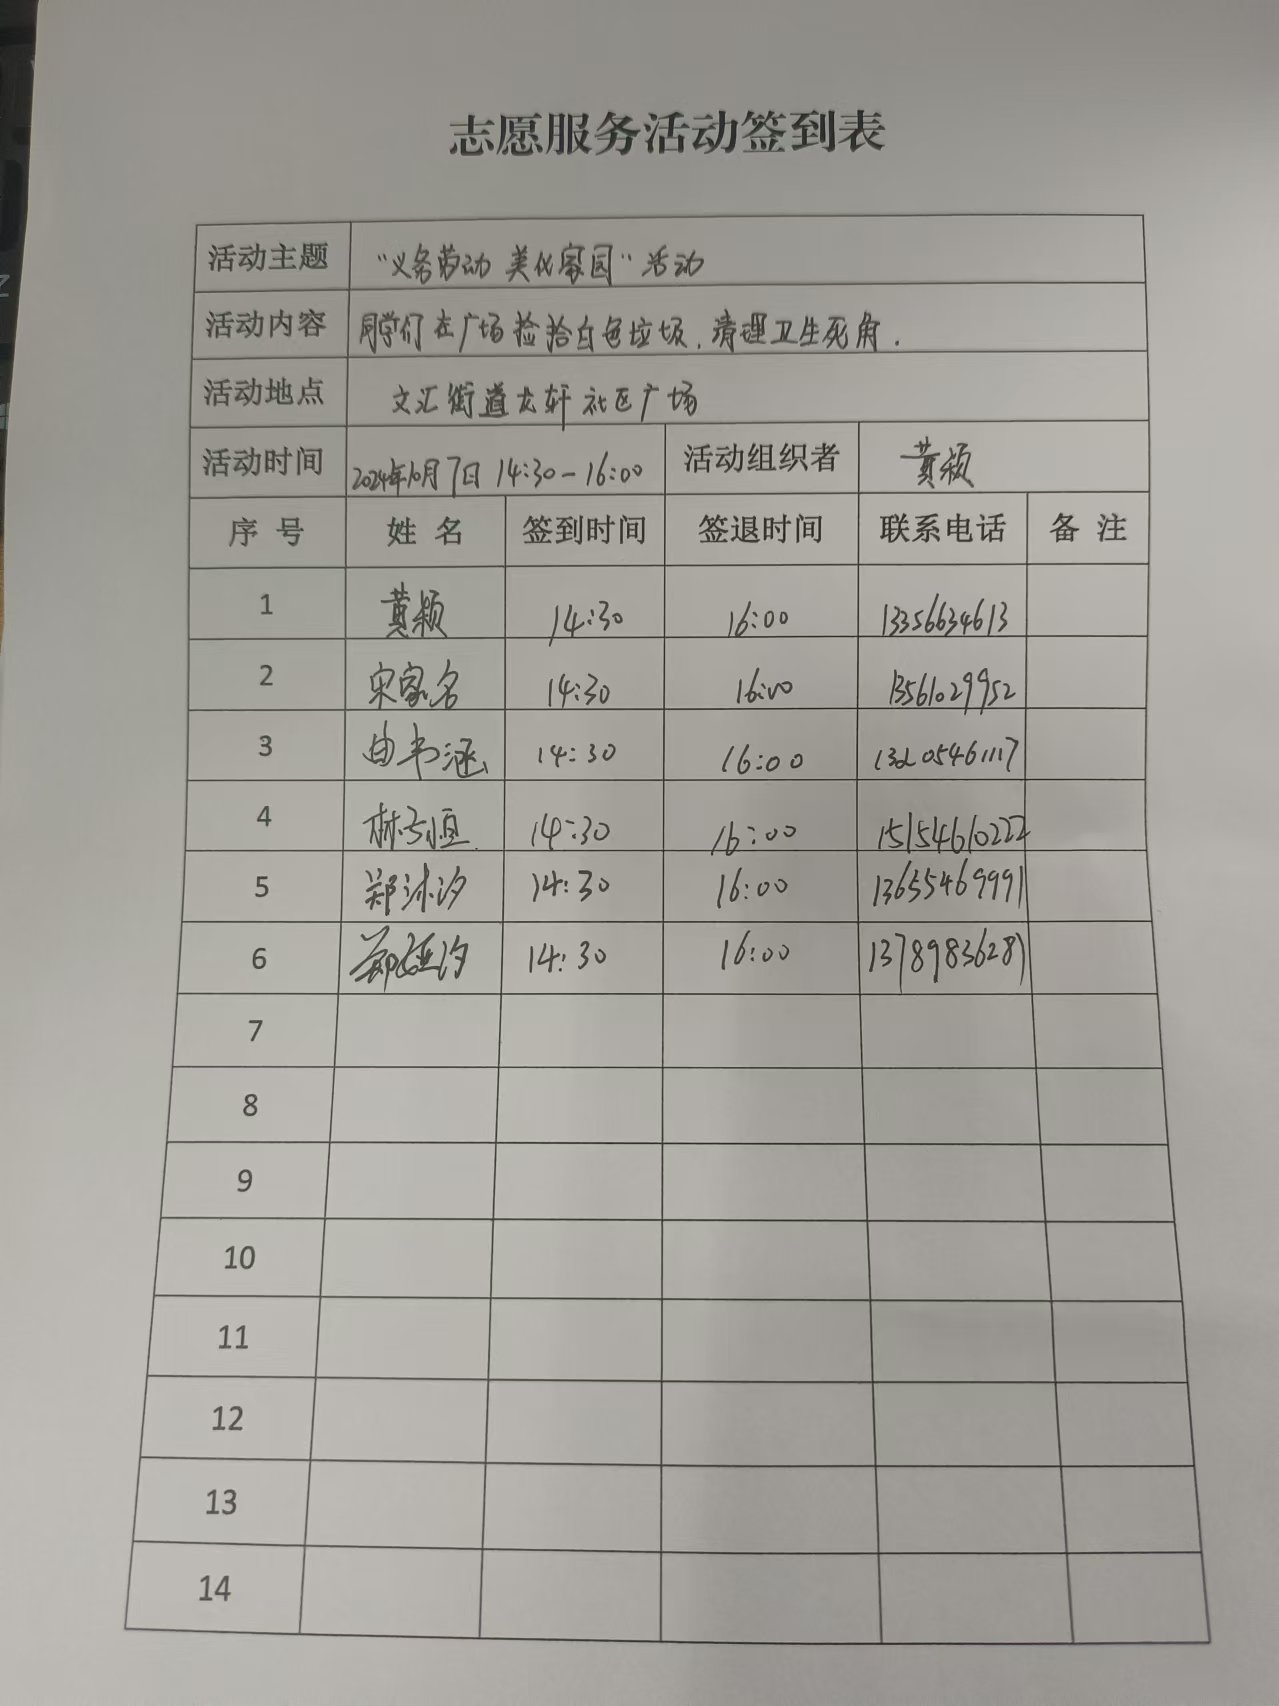 志愿服务活动签到表
活动主题 “义务劳动 美化家园”活动
活动内容 同学们在广场捡拾白色垃圾,清理卫生死角.
活动地点 文汇街道龙轩社区广场
活动时间 2024年10月7日 14:30-16:00 活动组织者 黄颖
序号 姓名 签到时间 签退时间 联系电话 备注
1 黄颖 14:30 16:00 13356634613
2 宋家名 14:30 16:00 13561029952
3 由书涵 14:30 16:00 13205461117
4 林子恒 14:30 16:00 15154610222
5 郑沐汐 14:30 16:00 13655469991
6 14:30 16:00 13789836289
7
8
9
10
11
12
13
14